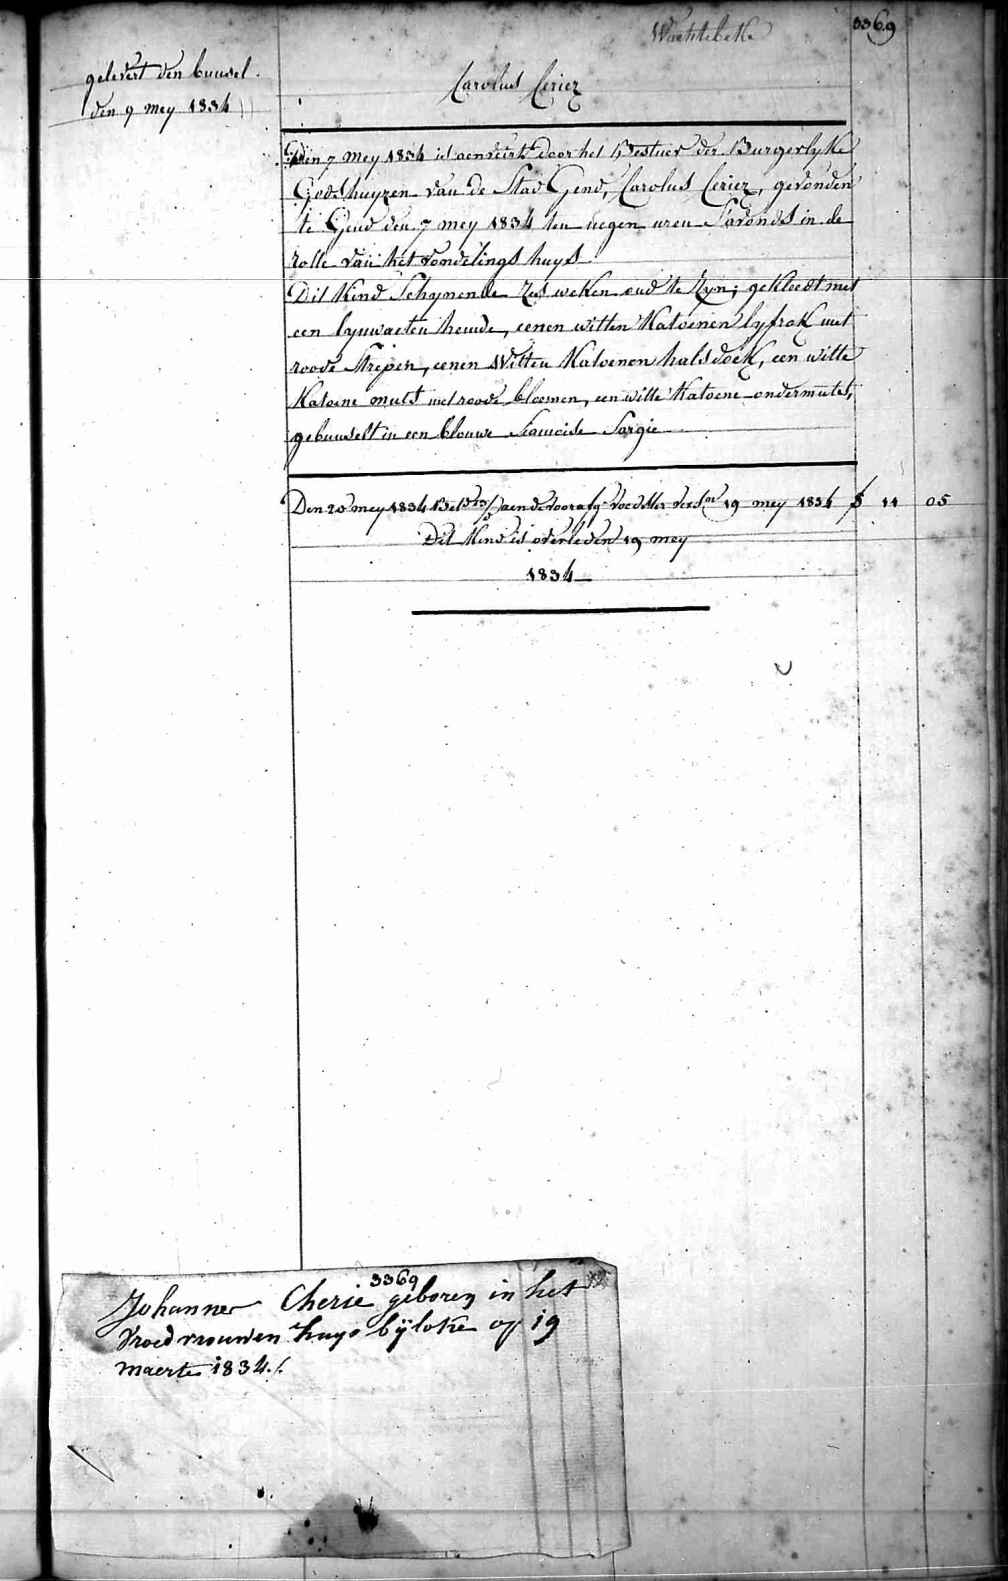 Wachtebeke
3369
gelevert den buusel
den 9 mey 1834
Carolus Ceriez
Den 7 mey 1834 is aenveirt door het Bestuer der Burgerlyke
Godshuyzen van de Stad Gend, Carolus Ceriez, gevonden
te Gend den 7 mey 1834 ten negen uren S'avonds in de
rolle van het vondelings huys
Dit Kind Schynende Zes weken oud te Zyn; gekleedt met
een lynwaeten hemde, eenen witten Katoenen lyfrok met
roode Strepen, eenen Witten Katoenen halsdoek, een witte
Katoene muts met roode bloemen, een witte Katoene ondermuts,
gebuuselt in een blouwe Siamoise Sargie
Den 20 mey 1834 Bet aende voorafg voedster 19 mey 1834 f 11 05
Dit Kind is overleden 19 mey
1834
3369
Johannes Cherie geboren in het
vroedvrouwen huys byloke op 19
maerte 1834./.